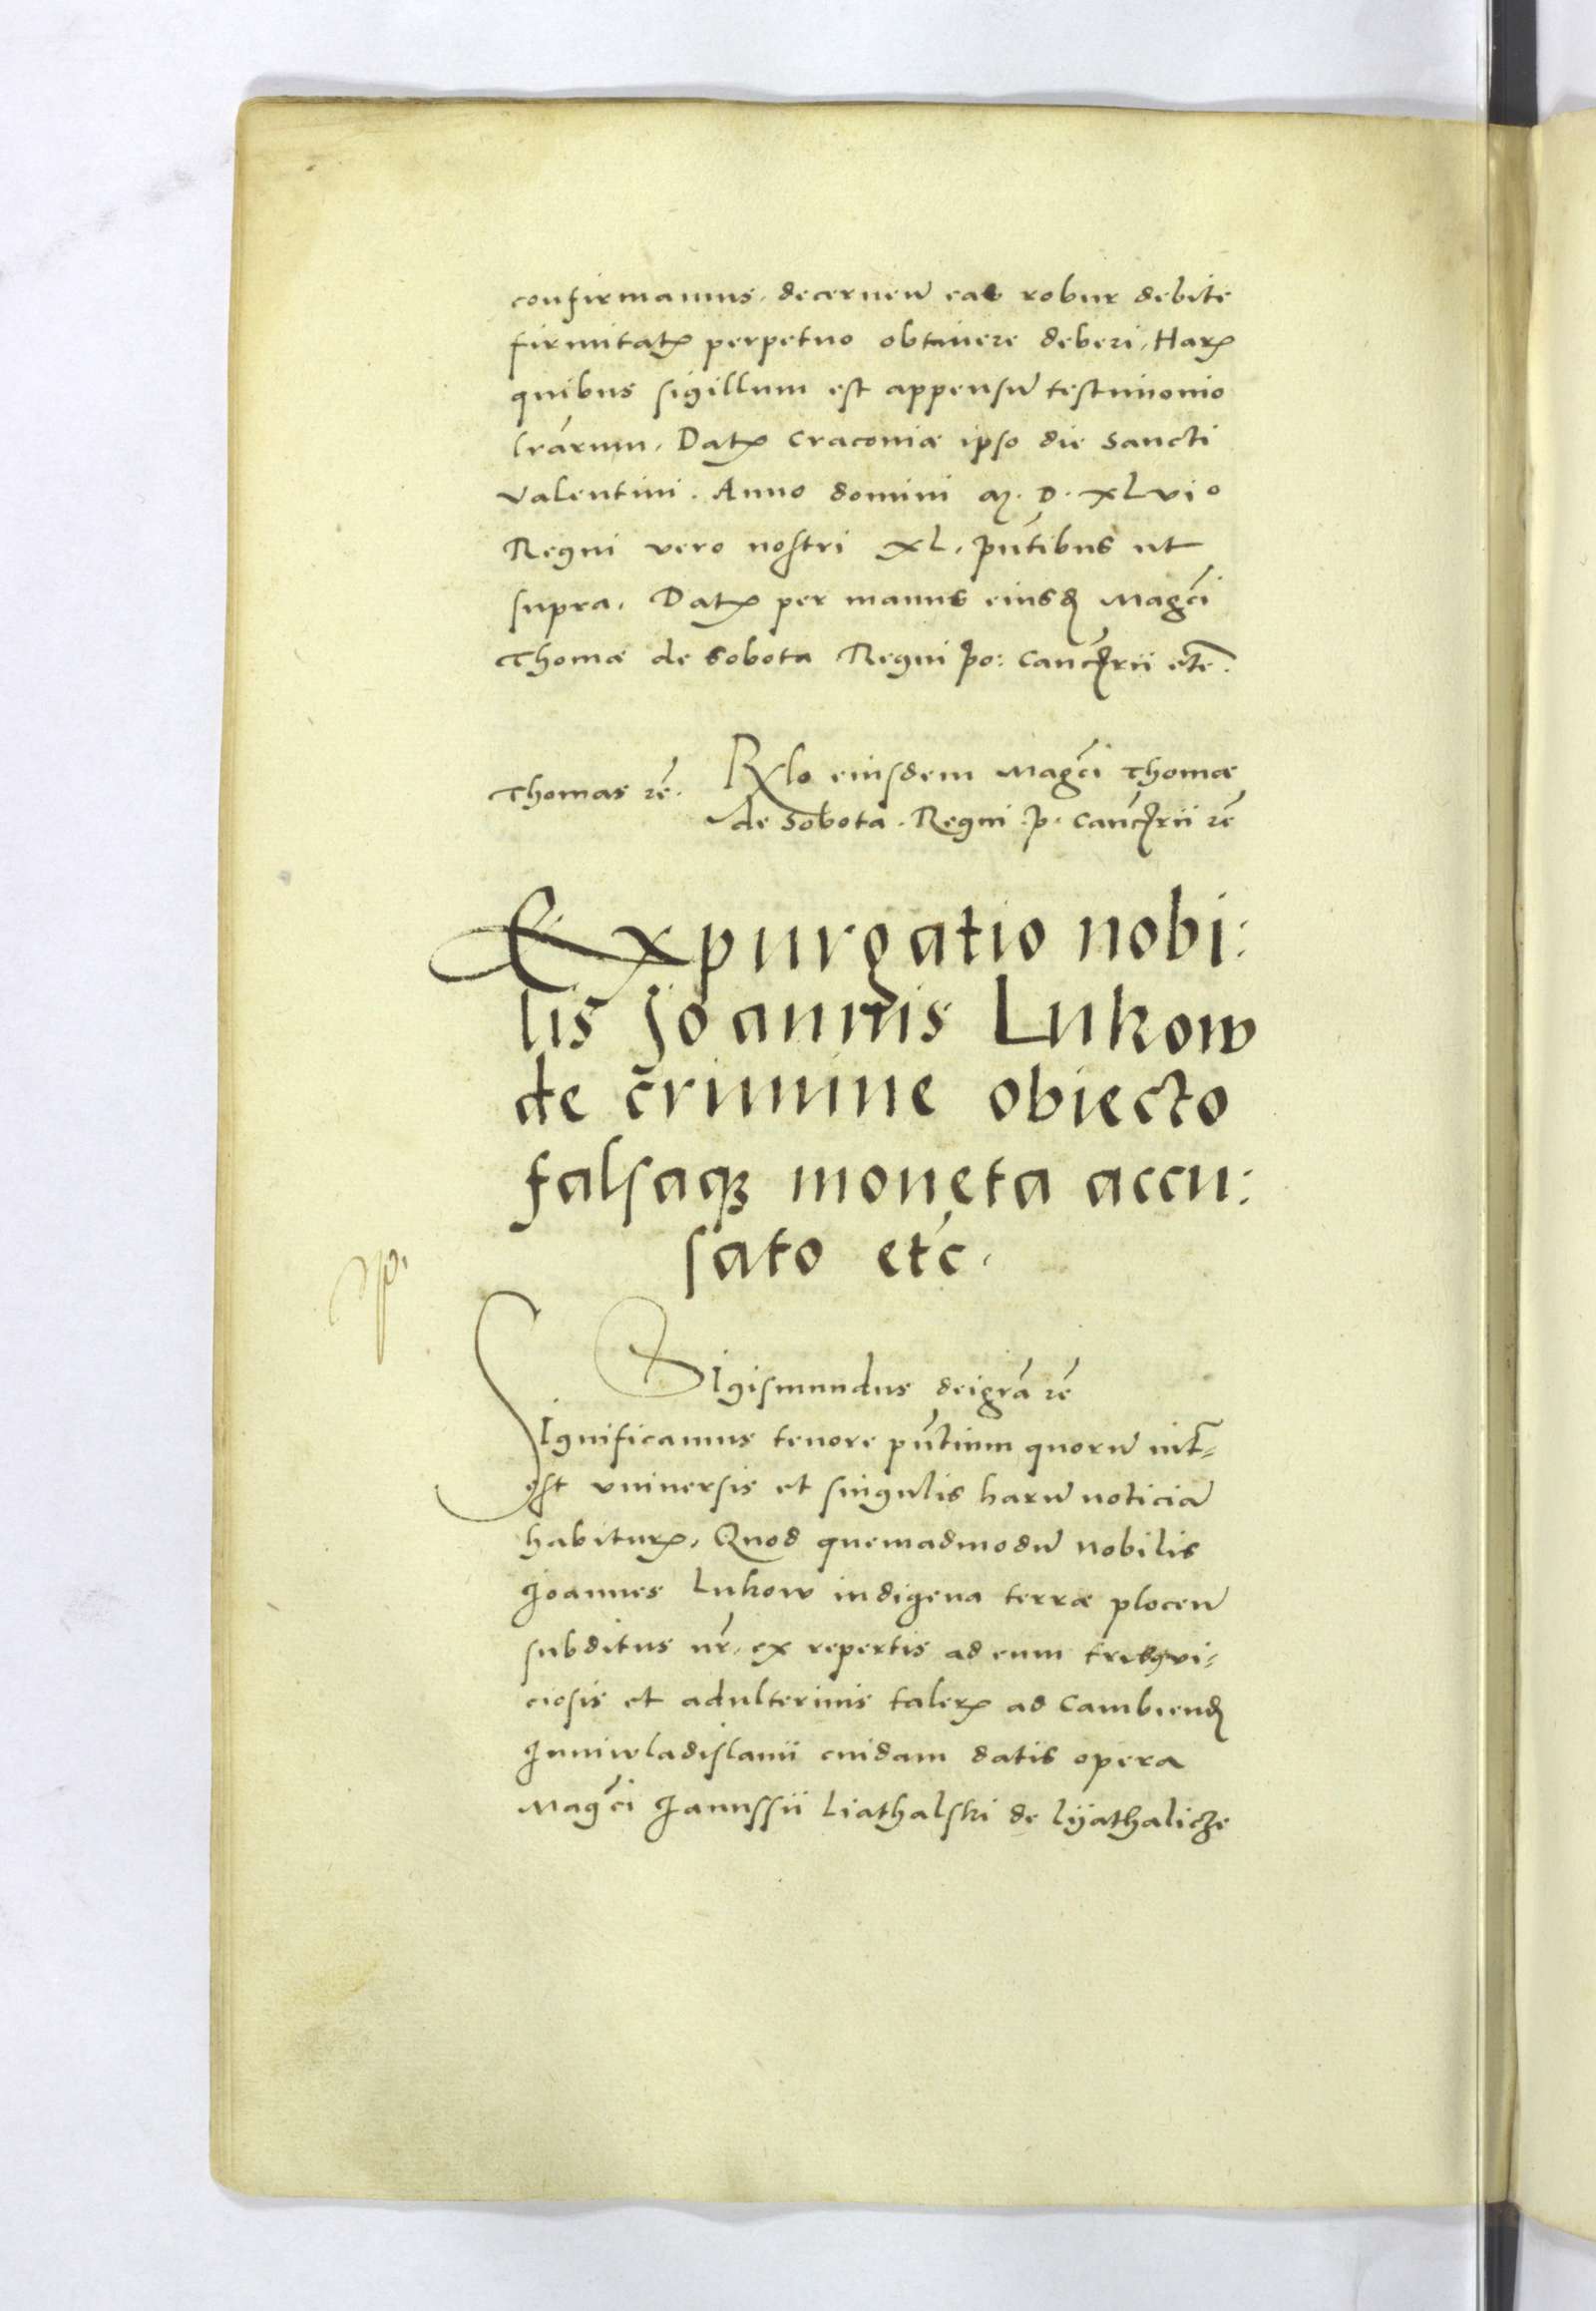 confirmamus, decernen̄ eas robur debite
firmitatꝭ perpetuo obtinere deberi, Harꝝ
quibus sigillum est appensū testimonio
lrārum, Datꝭ Craconiæ ipso die Sancti
Valentini. Anno domini M. D. XLVIo
Regni vero nostri XL, pūtibus ut
supra, Datꝭ per manus eiusđ Magc̄i
Thomæ de Sobota Regni po: canc̄rii etc̄.
Thomas rc̄. Rlo eiusdem Magc̄i Thomæ
de Sobota. Regni .p. canc̄rii rc̄
Expurgatio nobi:
lis Joannis Lukow
de crimine obiecto
falsaqꝫ moneta accu:
sato etc̄.
Sigismundus dei grā rc̄
Significamus tenore pn̄tium quorū int̄-
est vniuersis et singulis harū noticiā
habiturꝭ, Quod quemadmodū nobilis
Joannes Lukow indigena terræ plocen̄
subditus nr̄, ex repertis ad eum tribꝰ vi-
ciosis et adulterinis talerꝭ ad cambienđ
Juniwladislauii cuidam datis opera
Magc̄i Janussii Liathalski de Lyathalicze